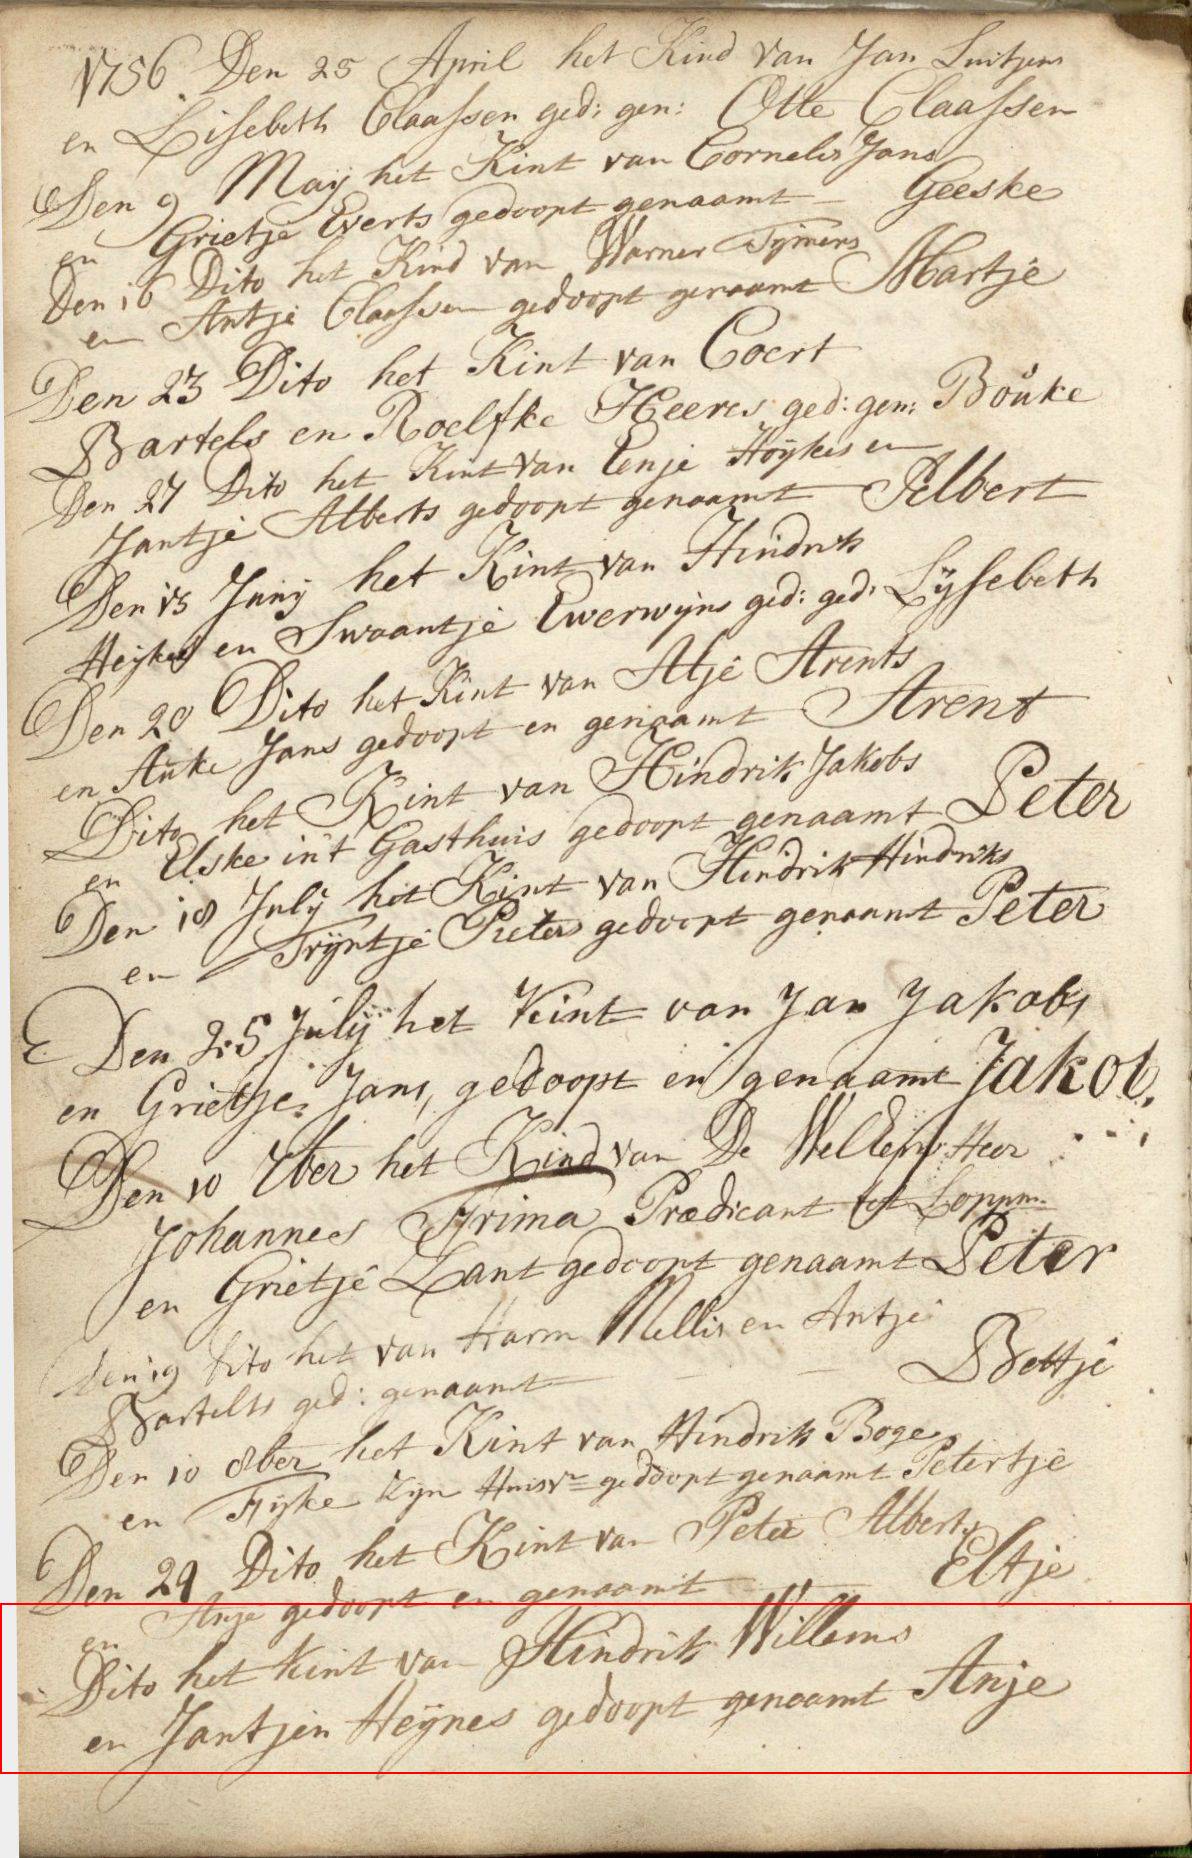 1756 Den 25 April het Kind van Jan Luitjens
en Lisebeth Claassen ged: gen: Otte Claassen
Den 9 Maij het Kint van Cornelis Jans
en Grietje Everts gedoopt genaamt - Geeske
Den 16 Dito het Kind van Warner Tijmens
en Antje Claassen gedoopt genaamt Martje
Den 23 Dito het Kint van Coert
Bartels en Roelfke Heeres ged: gen: Bouke
Den 27 Dito het Kint van Eenje Hoijkes en
Jantje Alberts gedoopt genaamt Albert
Den 13 Junij het Kint van Hindrik
Heijkes en Swaantje Ewerwijns ged: ged: Lijsebeth
Den 20 Dito het Kint van Atje Arents
en Auke Jans gedoopt en genaamt Arent
Dito het Kint van Hindrik Jakobs
en Elske in't Gasthuis gedoopt genaamt Peter
Den 18 Julij het Kint van Hindrik Hindriks
en Trijntje Pieters gedoopt genaamt Peter
Den 25 Julij het Kint van Jan Jakobs
en Grietje Jans, gedoopt en genaamt Jakob.
Den 10 7ber het Kind van De Welleerw: Heer
Johannes Frima Prædicant tot Loppm.
en Grietje Lant gedoopt genaamt Peter
den 19 dito het van Harm Mellis en Antje
Bartelts ged: genaamt - - - Bettje
Den 10 8ber het Kint van Hindrik Boge
en Fijke zijn Huisvr gedoopt genaamt Petertje
Den 24 Dito het Kint van Peter Alberts
en Anje gedoopt en genaamt - Eltje
Dito het Kint van Hindrik Willems
en Jantjen Heijnes gedoopt genaamt Anje